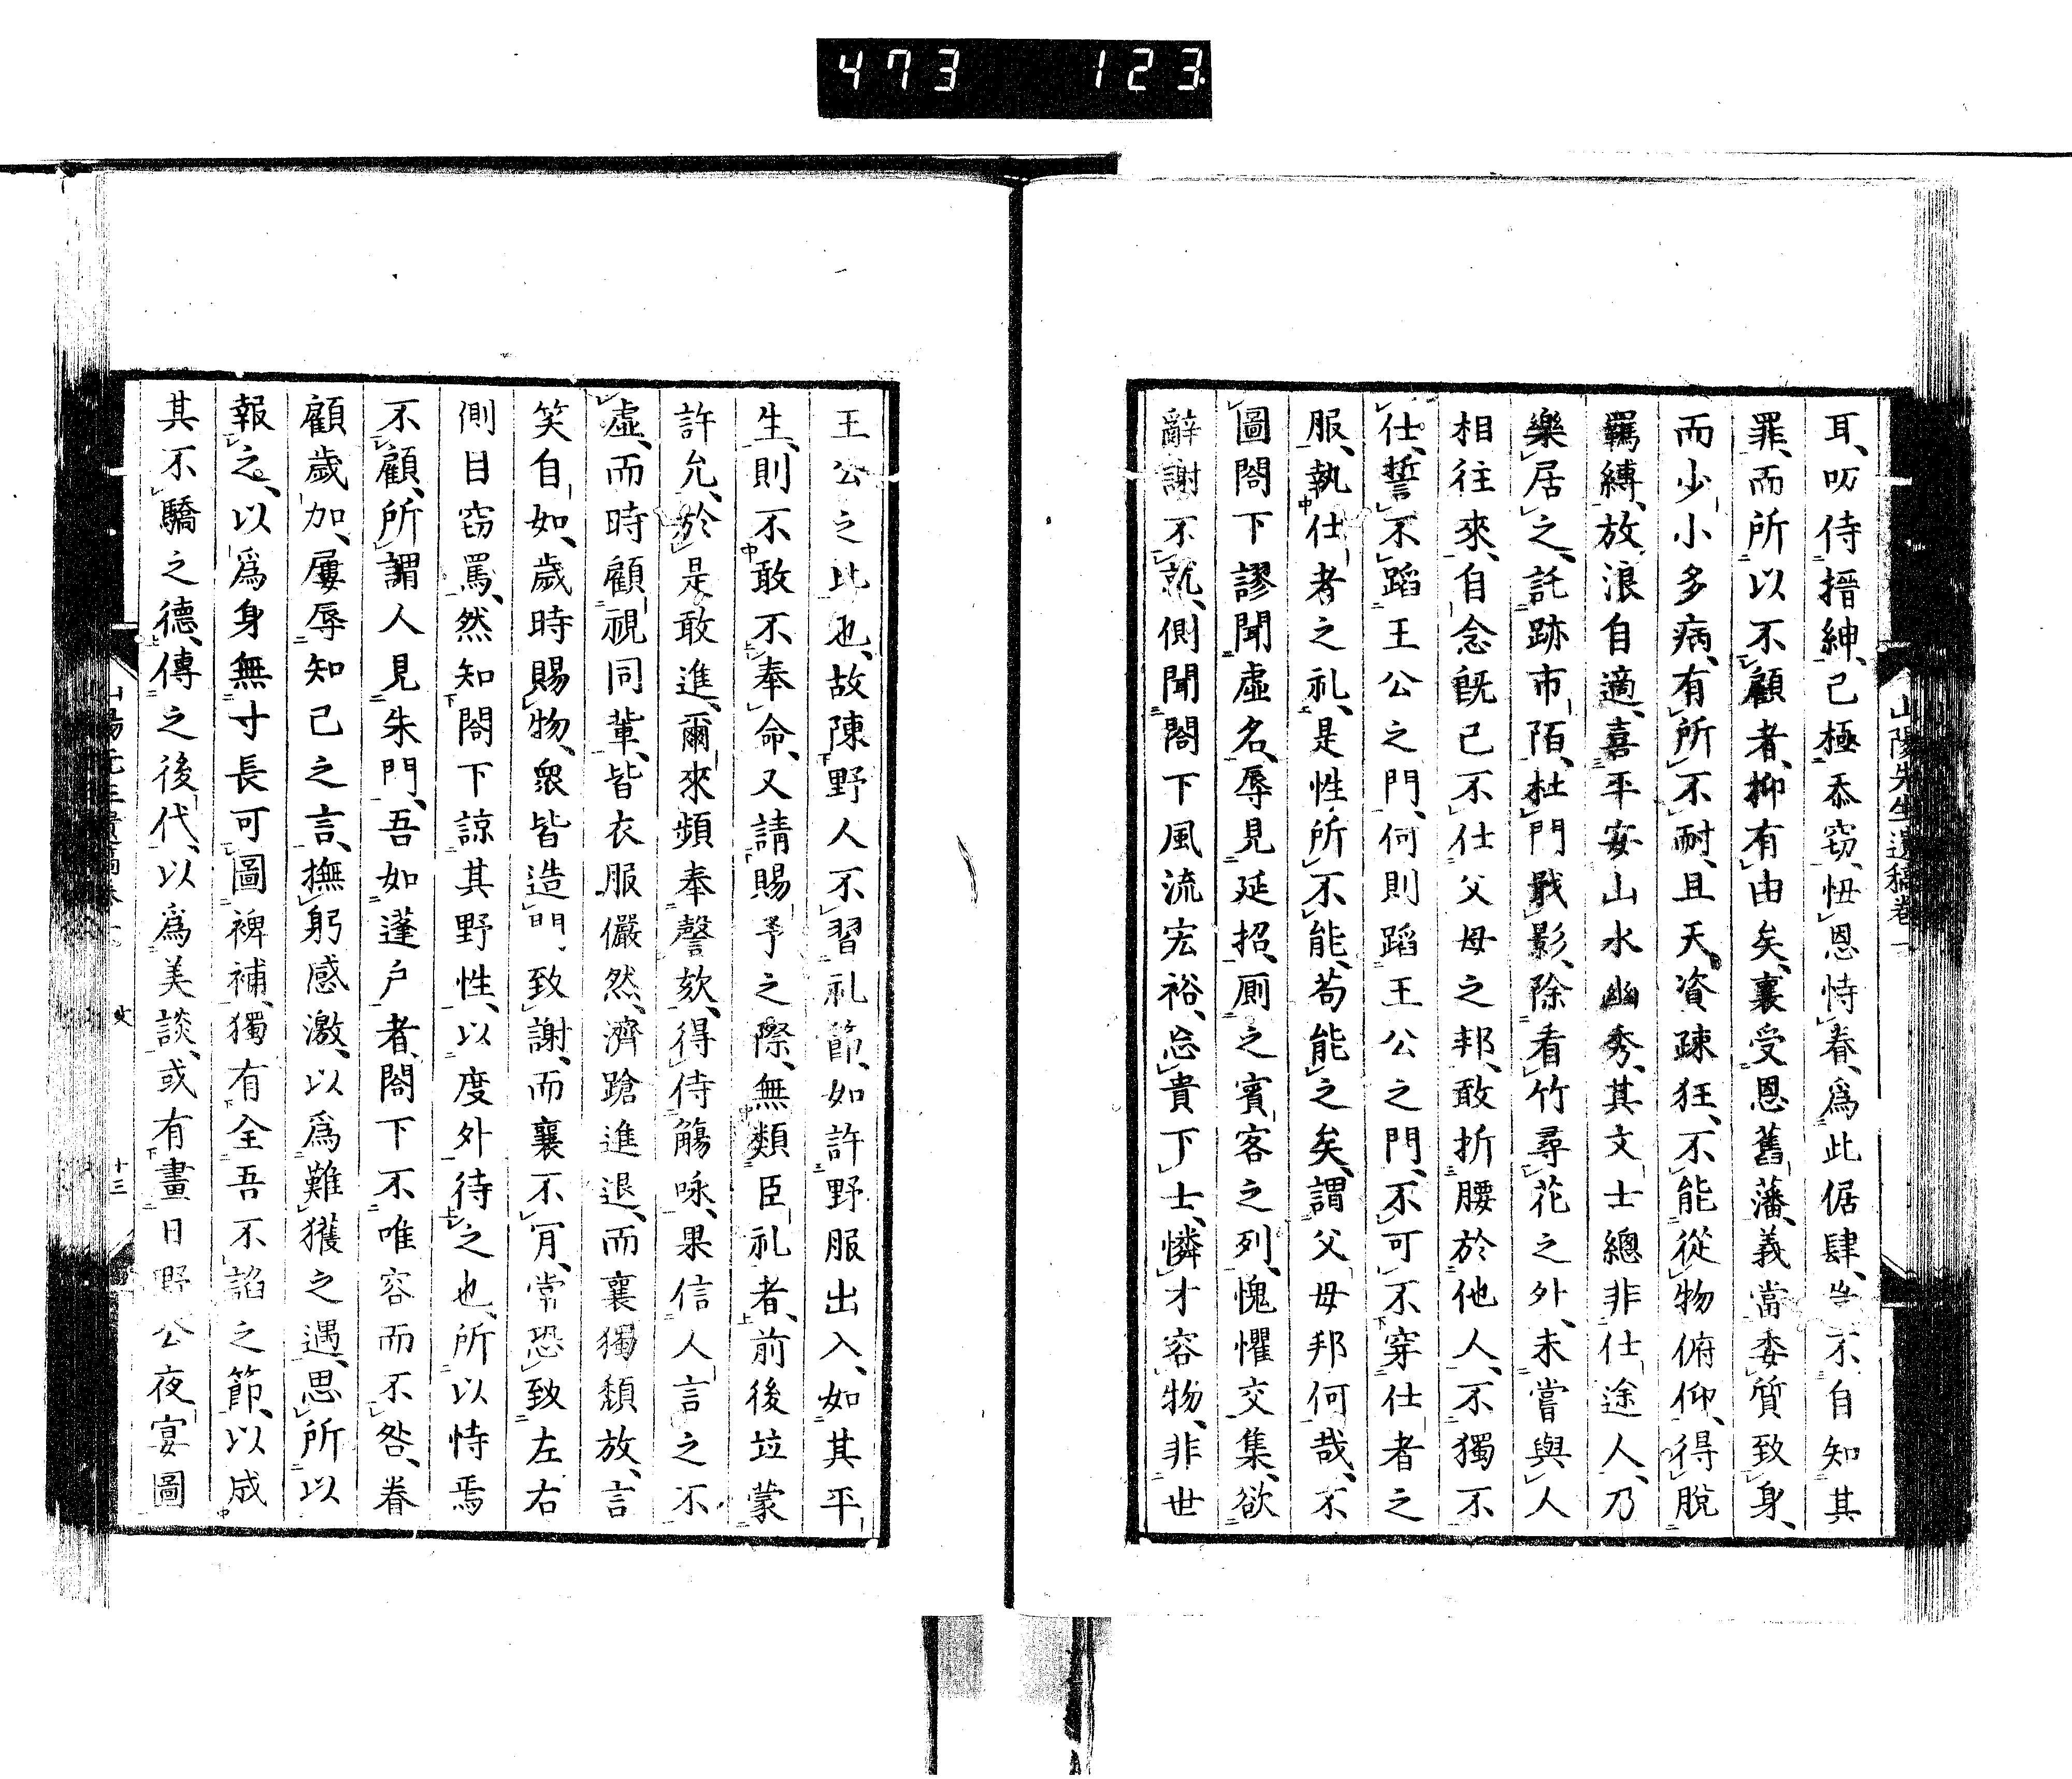 473 123
山陽先生遺稿卷一
耳、叨侍搢紳、已極忝窃、忸恩恃眷、爲此倨肆、豈不自知其
罪、而所以不顧者、抑有由矣、襄受恩舊藩、義當委質致身、
而少小多病、有所不耐、且天資疎狂、不能從物俯仰、得脫
羈縛、放浪自適、喜平安山水幽秀、其文士總非仕途人、乃
樂居之、託跡市陌、杜門戢影、除看竹尋花之外、未嘗與人
相往來、自念既已不仕父母之邦、敢折腰於他人、不獨不
仕、誓不蹈王公之門、何則蹈王公之門、不可不穿仕者之
服、執仕者之礼、是性所不能、苟能之矣、謂父母邦何哉、不
圖閤下謬聞虛名、辱見延招、廁之賓客之列、愧懼交集、欲
辭謝不就、側聞閤下風流宏裕、忘貴下士、憐才容物、非世
王公之比也、故陳野人不習礼節、如許野服出入、如其平
生、則不敢不奉命、又請賜予之際、無類臣礼者、前後竝蒙
許允、於是敢進、爾來頻奉謦欬、得侍觴咏、果信人言之不
虛、而時顧視同輩、皆衣服儼然、濟蹌進退、而襄獨頹放、言
笑自如、歲時賜物、衆皆造門、致謝、而襄不肎、常恐致左右
側目窃罵、然知閤下諒其野性、以度外待之也、所以恃焉
不顧、所謂人見朱門、吾如蓬戶者、閤下不唯容而不咎、眷
顧歲加、屢辱知己之言、撫躬感激、以爲難獲之遇、思所以
報之、以爲身無寸長可圖裨補、獨有全吾不諂之節、以成
其不驕之德、傳之後代、以爲美談、或有畫日野公夜宴圖
山陽先生遺稿卷一 文 十三